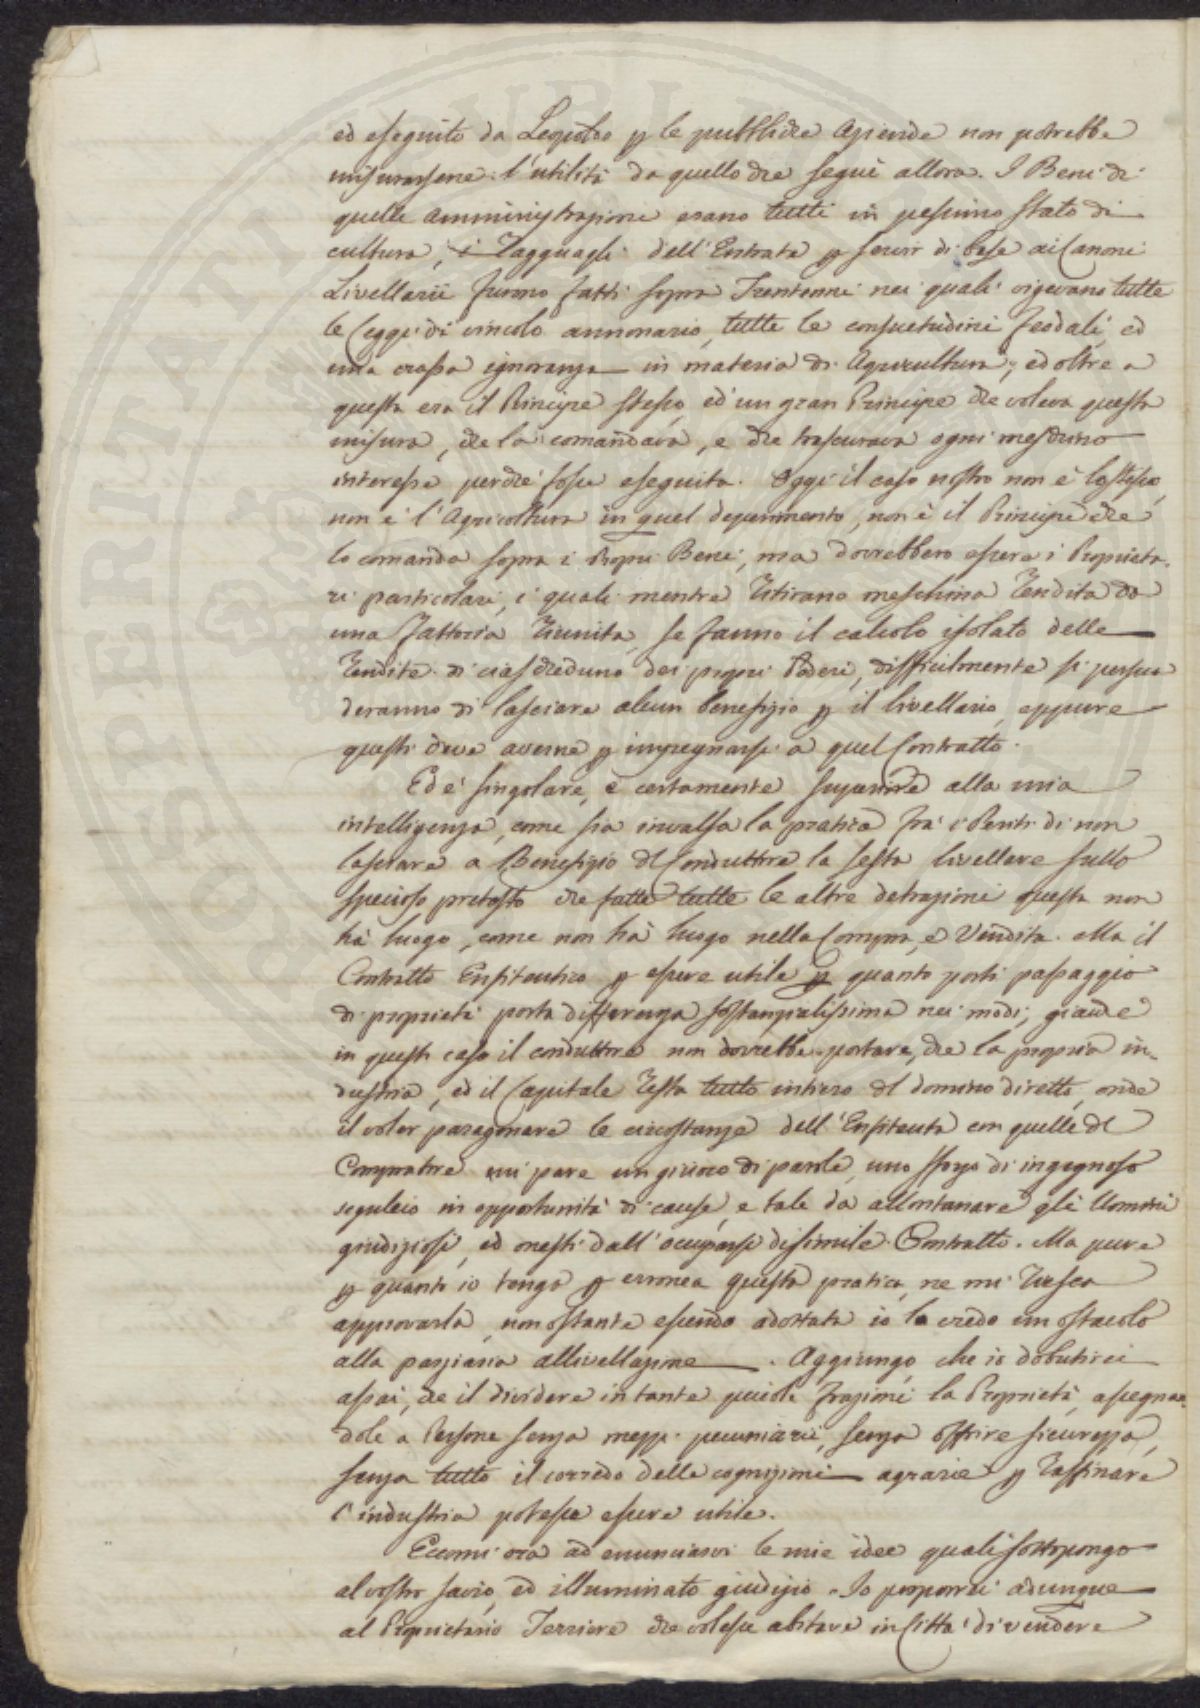 ed eseguito da Leopoldo p le pubbliche Aziende non potrebbe
misurarsene l'utilità da quello che seguì allora. I Beni di
quelle Amministrazioni erano tutti in pessimo stato di
cultura, i Ragguagli dell'Entrata p servir di base ai Canoni
Livellarii furono fatti sopra Trentenni nei quali vigevano tutte
le Leggi di vincolo annonario, tutte le consuetudini feodali, ed
una crassa ignoranza in materia di Agricultura; ed oltre a
questa era il Principe stesso, ed un gran Principe che voleva questa
misura, che la comandava, e che trascurava ogni meschino
interesse perchè fosse eseguita. Oggi il caso nostro non è lo stesso,
non è l'Agricoltura in quel deperimento, non è il Principe che
lo comanda sopra i propri Beni, ma dovrebbero essere i Proprieta-
ri particolari, i quali mentre ritirano meschina Rendita da
una Fattoria riunita, se fanno il calcolo isolato delle
Rendite di ciascheduno dei propri Poderi, difficilmente si persua
deranno di lasciare alcun benefizio p il livellario, eppure
questi deve averne p impegnarsi a quel Contratto.
Ed è singolare, e certamente superiore alla mia
intelligenza, come sia invalsa la pratica frà i Periti di non
lasciare a Benefizio del Conduttore la sesta livellare sullo
specioso pretesto che fatte tutte le altre detrazioni questa non
hà luogo, come non hà luogo nella Compra, e Vendita. Ma il
Contratto Enfiteutico p essere utile p quanto porti passaggio
di proprietà porta differenza sostanzialissima nei modi; giacchè
in questo caso il conduttore non dovrebbe portare, che la propria in-
dustria, ed il Capitale resta tutto intiero del dominio diretto, onde
il voler paragonare le circostanze dell'Enfiteuta con quelle del
Compratore mi pare un giuoco di parole, uno sforzo di ingegnoso
in opportunità di cause, e tale da allontanare gli Uomini
giudiziosi, ed onesti dall'occuparsi di simile Contratto. Ma pure
p quanto io tenga p erronea questa pratica, ne mi riesca
approvarla, non ostante essendo adottata io la credo un ostacolo
alla parziaria allivellazione. Aggiungo, che io dubiterei
assai, che il dividere in tante piccole frazioni la Proprietà, assegnan-
dole a Persone senza mezzi pecuniarii, senza offrire sicurezza,
senza tutto il corredo delle cognizioni agrarie p raffinare
l'industria potesse essere utile.
Eccomi ora ad enunciarvi le mie idee quali sottopongo
al vostro savio, ed illuminato giudizio. Io proporrei adunque
al Proprietario Terriere che volesse abitare in Città di vendere